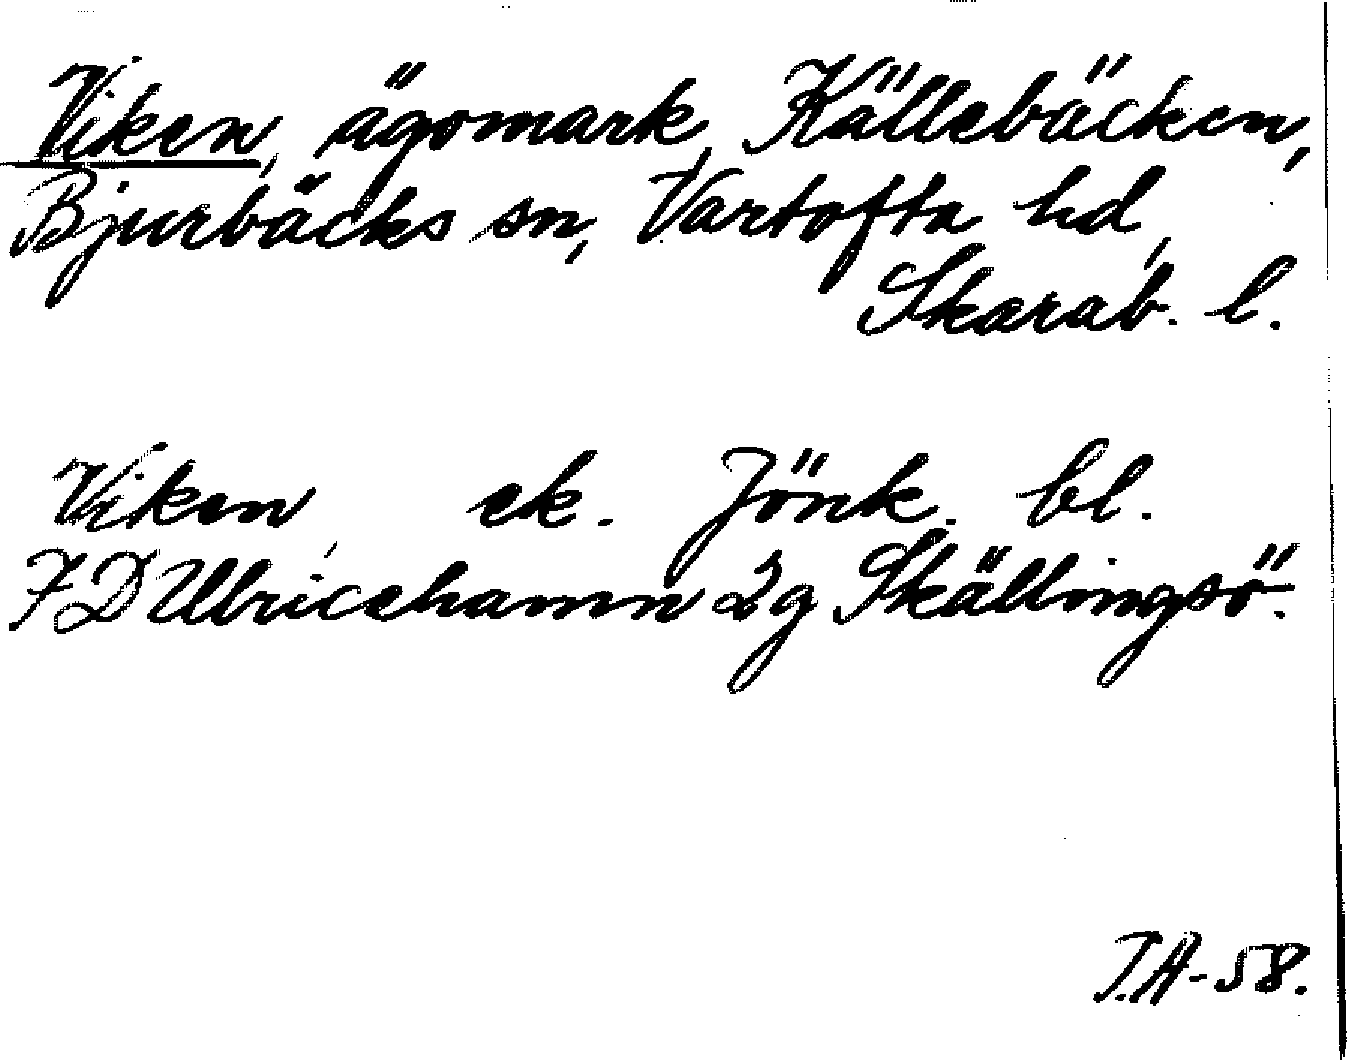 Viken, ägomark, Källebäcken,
Bjurbäcks sn, Vartofta hd,
Skarab. l.
Viken, ek. Jönk. bl.
7D Ulricehamn 2g Skällingsö.
T.A-58.